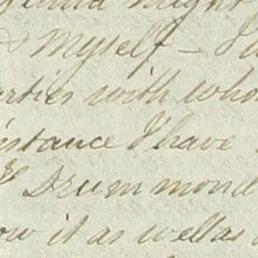 might
& myself – I
with who
instance I have
Drummond
it as well as